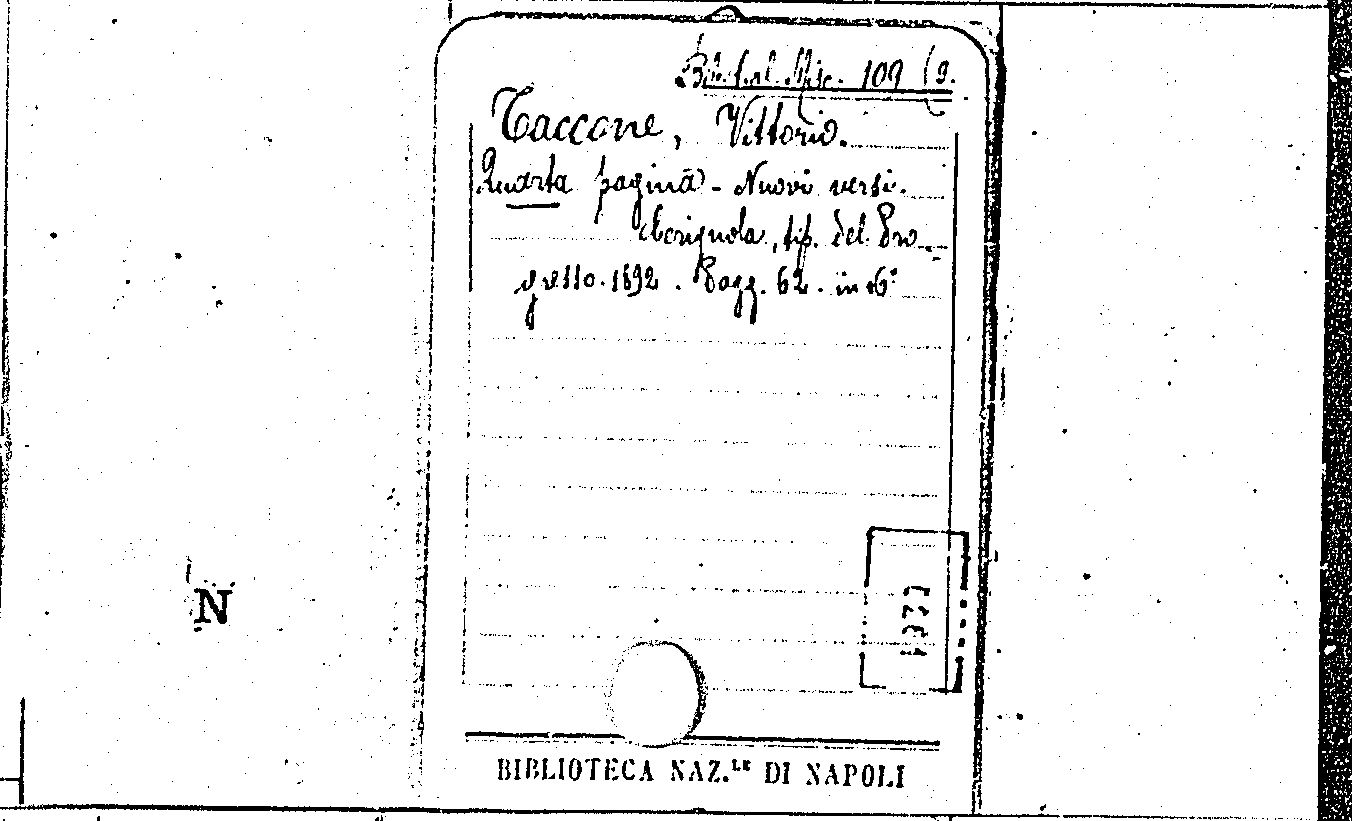 Bib. Cal. Misc. 109 (9.
Taccone, Vittorio.
Quarta pagina - Nuovi versi.
Cerignola, tip. del Pro
gresso. 1892. Pagg. 62. in 16°
N
BIBLIOTECA NAZ.LE DI NAPOLI